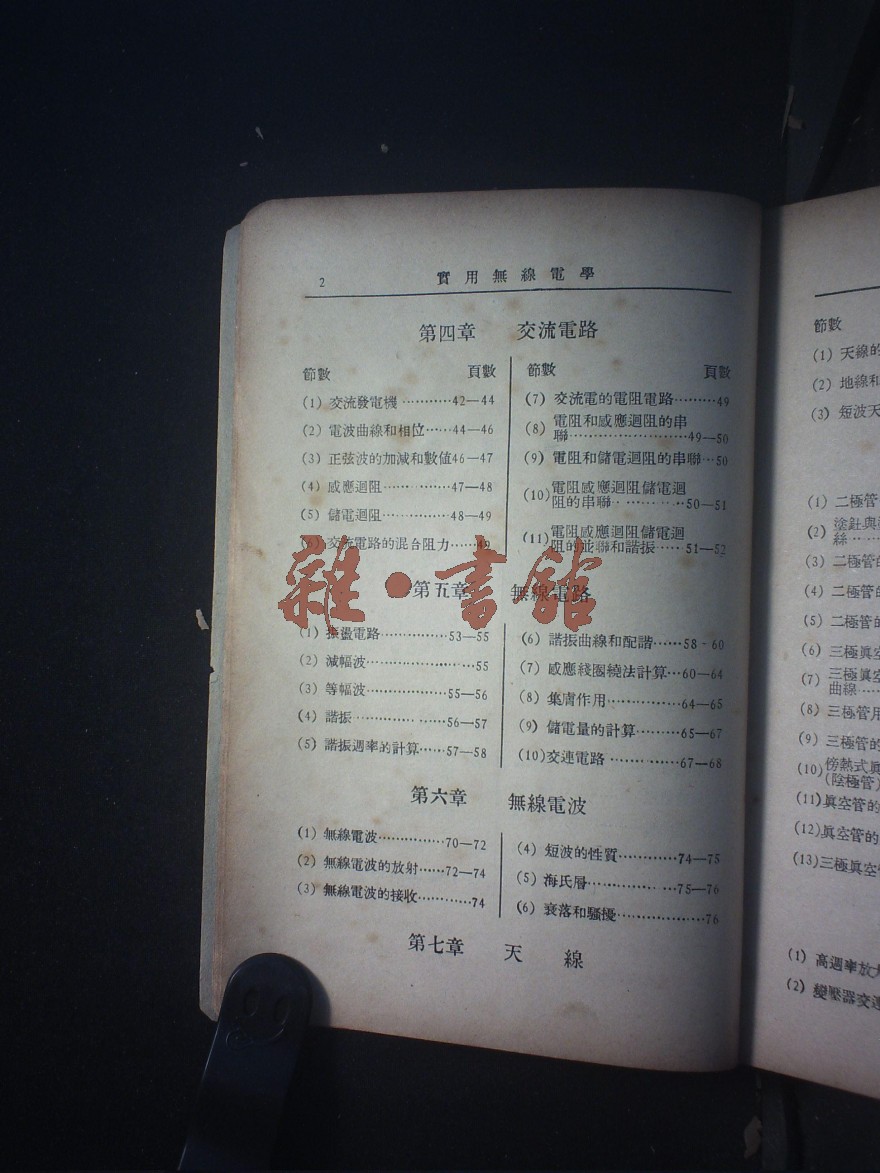 2　實用無線電學
第四章　交流電路
節數　頁數
(1) 交流發電機 …………42—44
(2) 電波曲線和相位……44—46
(3) 正弦波的加減和數值46—47
(4) 感應迴阻……………47—48
(5) 儲電迴阻……………48—49
(6) 交流電路的混合阻力……49
節數　頁數
(7) 交流電的電阻電路………49
(8) 電阻和感應迴阻的串
聯……………………49—50
(9) 電阻和儲電迴阻的串聯…50
(10) 電阻感應迴阻儲電迴
阻的串聯……………50—51
(11) 電阻感應迴阻儲電迴
阻的並聯和諧振……51—52
第五章　無線電路
(1) 振盪電路………………53—55
(2) 減幅波……………………55
(3) 等幅波………………55—56
(4) 諧振…………………56—57
(5) 諧振週率的計算……57—58
(6) 諧振曲線和配諧……58-60
(7) 感應綫圈繞法計算…60—64
(8) 集膚作用……………64—65
(9) 儲電量的計算………65—67
(10) 交連電路……………67—68
第六章　無線電波
(1) 無線電波……………70—72
(2) 無線電波的放射……72—74
(3) 無線電波的接收…………74
(4) 短波的性質…………74—75
(5) 海氏層………………75—76
(6) 衰落和騷擾………………76
第七章　天線
雜·書館
節數
(1) 天線的
(2) 地線和
(3) 短波天
(1) 二極管
(2)
絲……
(3) 二極管的
(4) 二極管的
(5) 二極管的
(6) 三極眞空
(7) 三極眞空
曲線……
(8) 三極管用
(9) 三極管的
(10) 傍熱式眞
(陰極管)
(11) 眞空管的
(12) 眞空管的
(13) 三極眞空管
(1) 高週率放大
(2) 變壓器交連